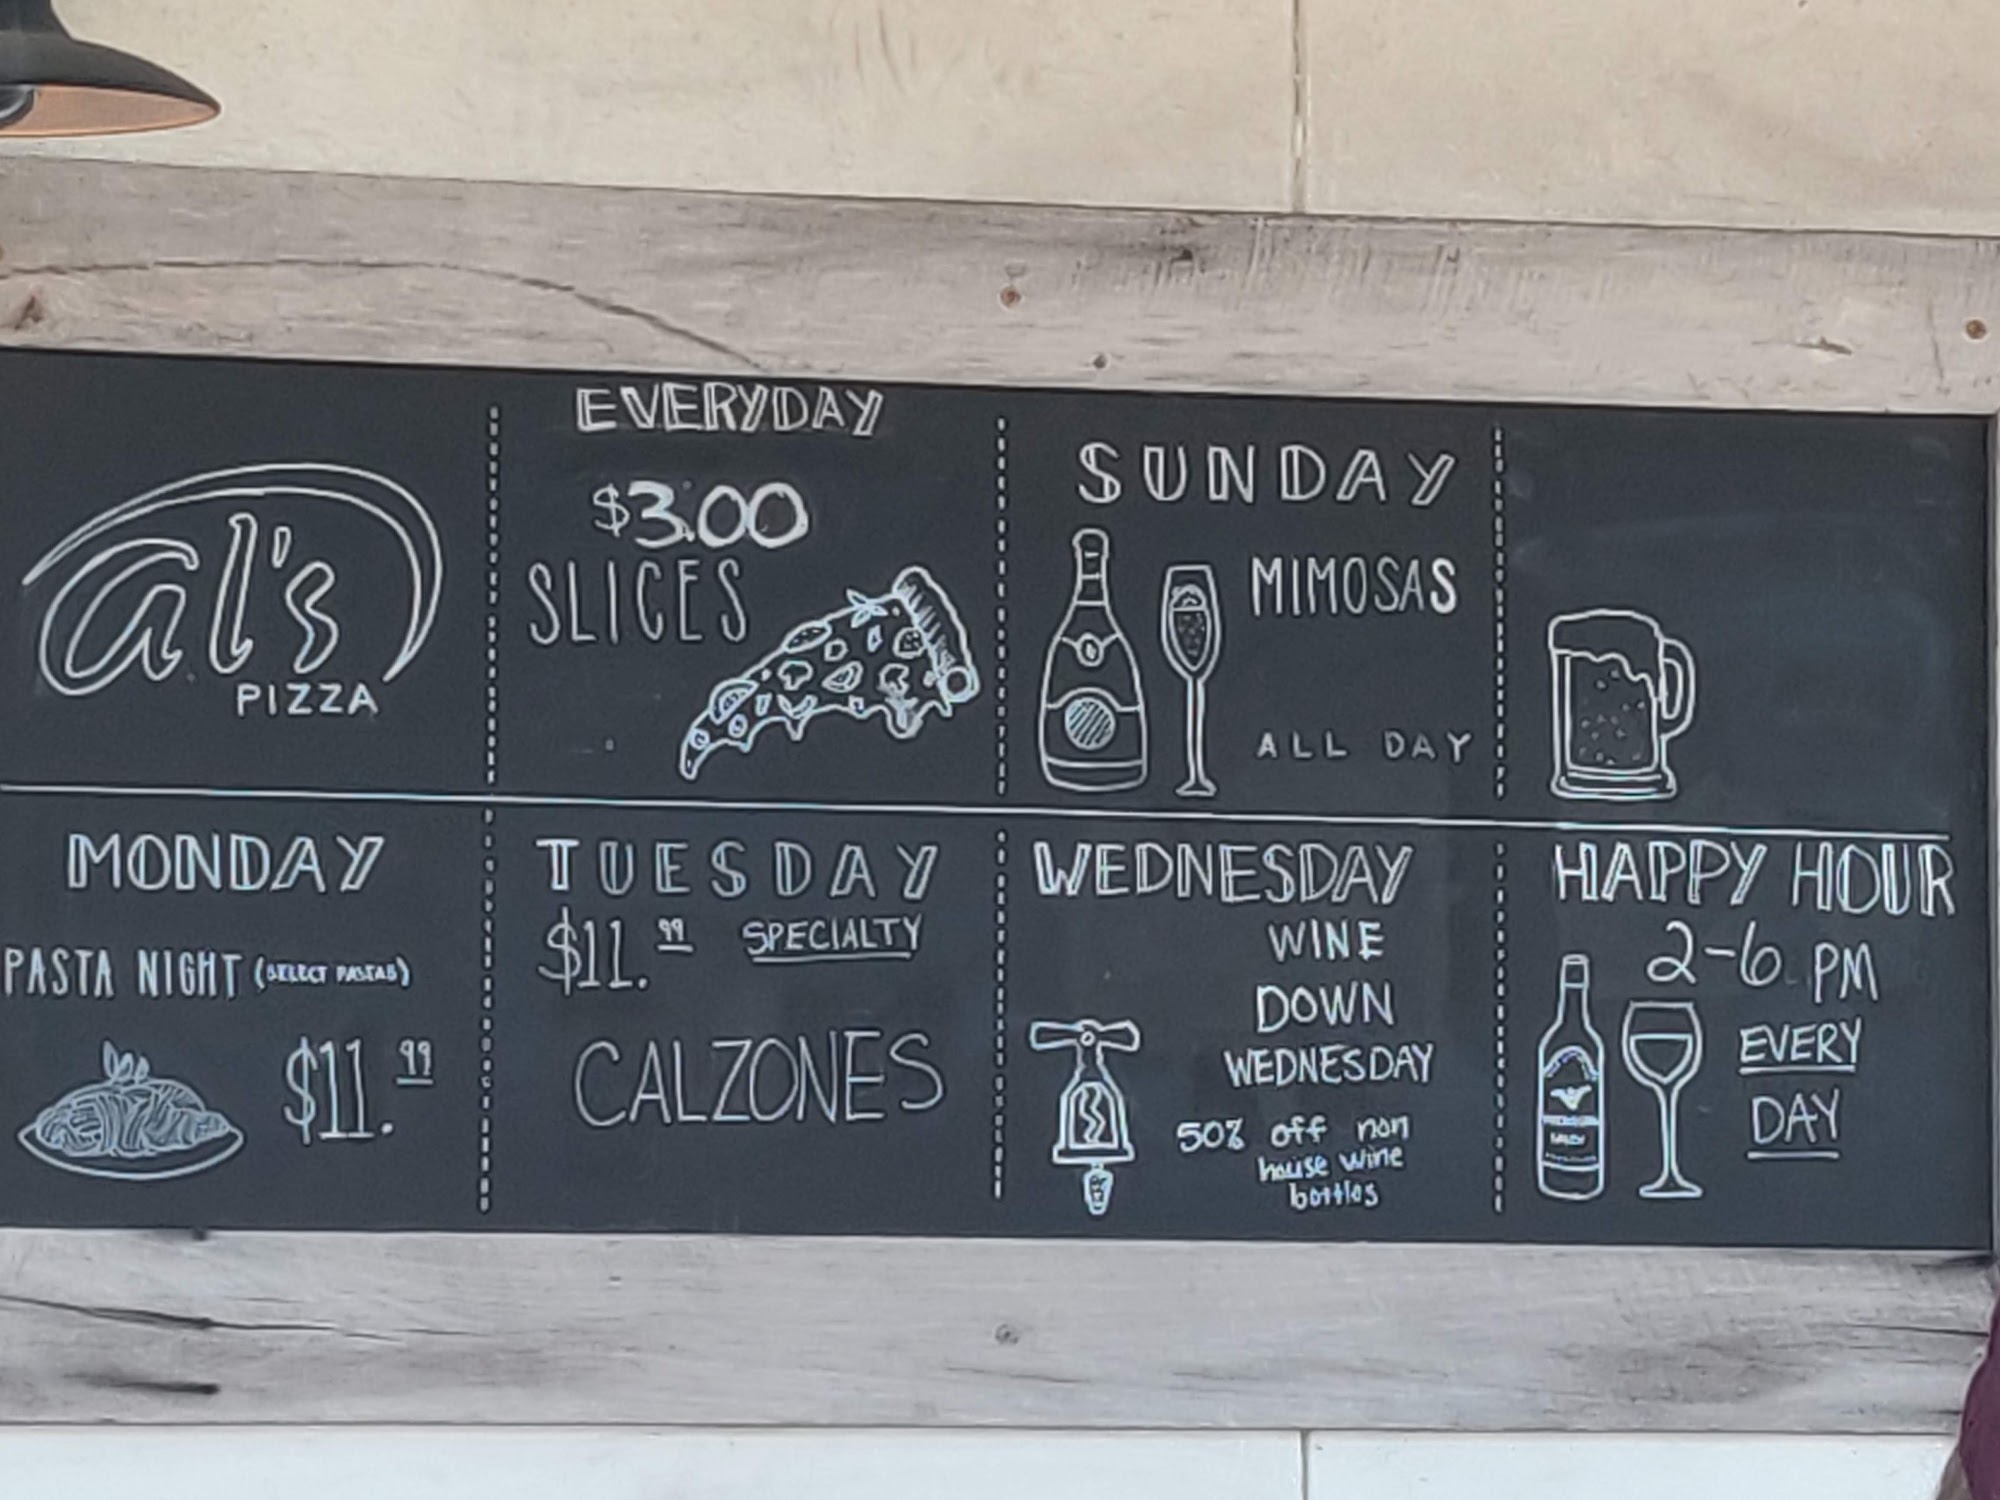 al's
PIZZA
EVERYDAY
$3.00
SLICES
SUNDAY
MIMOSAS
ALL DAY
MONDAY
PASTA NIGHT (SELECT PASTAS)
$11.99
TUESDAY
$11.99 SPECIALTY
CALZONES
WEDNESDAY
WINE
DOWN
WEDNESDAY
50% off non
house wine
bottles
HAPPY HOUR
2-6 PM
EVERY
DAY